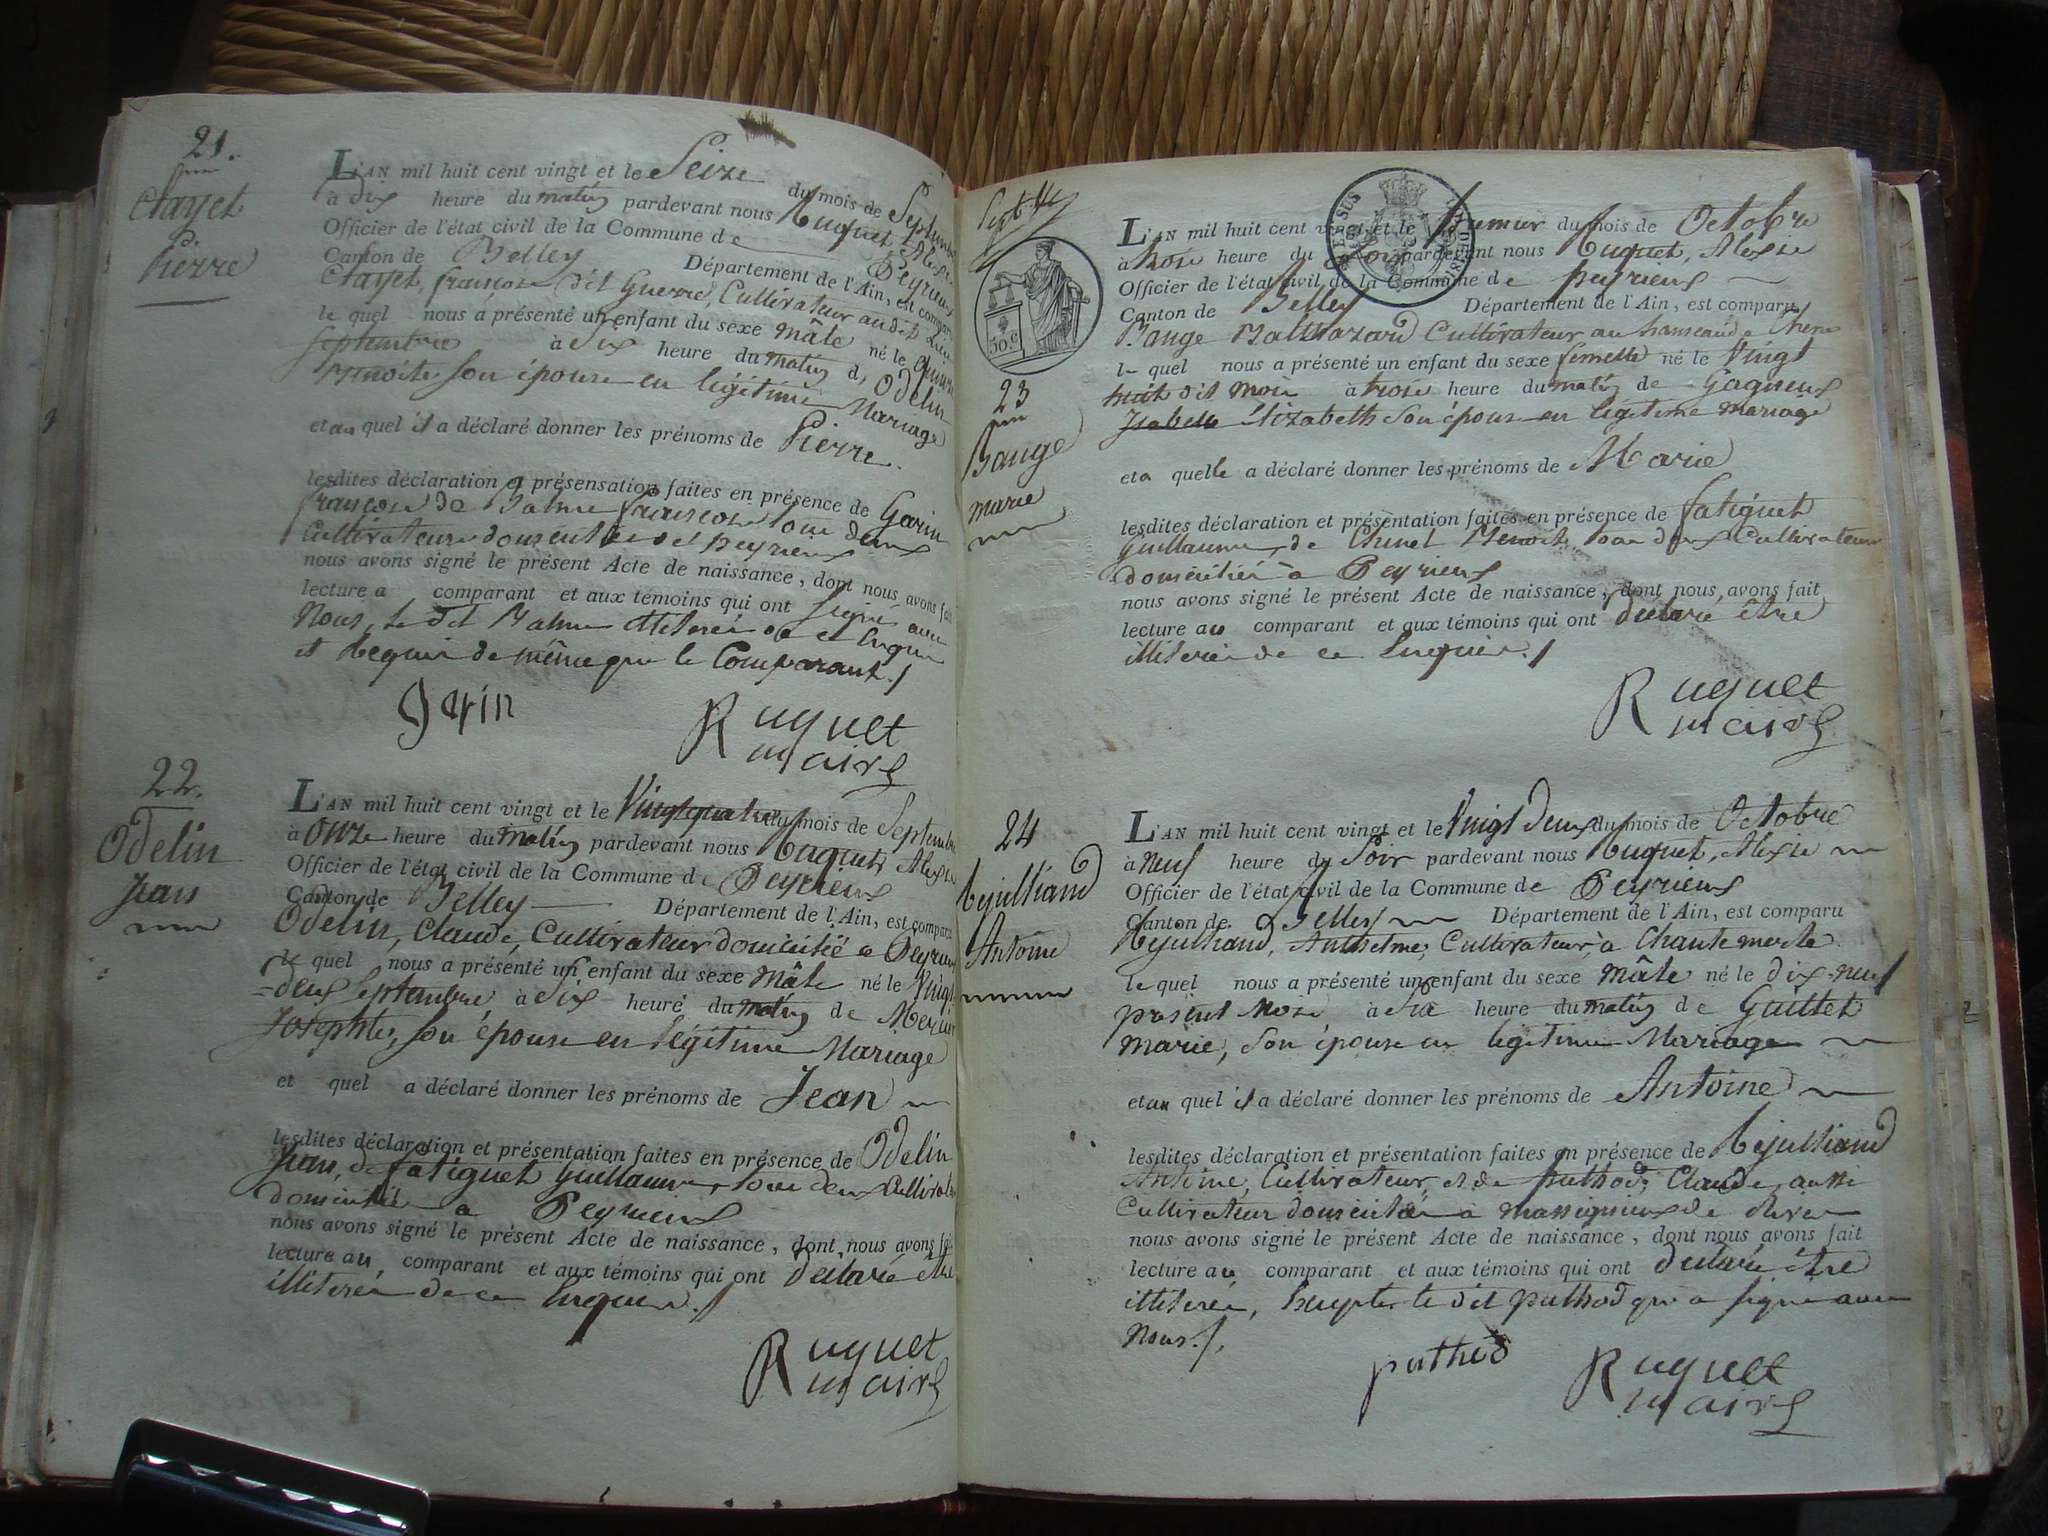 21.
Clayet
Pierre
L'AN mil huit cent vingt et le Seize du mois de Septembre
à dix heure du matin pardevant nous Ruquet, Alexis
Officier de l'état civil de la Commune de Peyrieux
Canton de Belley Département de l'Ain, est comparu
Clayet, françois dit Guerre, Cultivateur audit lieu
le quel nous a présenté un enfant du sexe mâle né le quinze
Septembre à Six heure du matin d' Odelin
son épouse en légitime Mariage
et au quel il a déclaré donner les prénoms de Pierre.
lesdites déclaration et présensation faites en présence de Garin
françois de Balme françois tous deux
Cultivateurs domiciliés Peyrieux
nous avons signé le présent Acte de naissance, dont nous avons fait
lecture a comparant et aux témoins qui ont signé avec
Nous, le dit Balme illiteré de ce Enquis
et Requis de même que le Comparant./
Garin
Ruquet
maire
22.
Odelin
Jean
L'AN mil huit cent vingt et le Vingtquatre du mois de Septembre
à Onze heure du matin pardevant nous Ruquet, Alexis
Officier de l'état civil de la Commune de Peyrieux
Canton de Belley Département de l'Ain, est comparu
Odelin, Claude, Cultivateur domicilié a Peyrieux
le quel nous a présenté un enfant du sexe Mâle né le Vingt
-deux Septembre à Six heure du matin de Mercier
Josephte, son épouse en légitime Mariage
et quel a déclaré donner les prénoms de Jean
lesdites déclaration et présentation faites en présence de Odelin
Jean, de fatiguet Guillaume, tous deux Cultivateur
domicilié a Peyrieux
nous avons signé le présent Acte de naissance, dont nous avons fait
lecture au comparant et aux témoins qui ont déclaré être
illiterés de ce Enquis./
Ruquet
maire
30.c
23
Bange
marie
L'AN mil huit cent vingt et le premier du mois de Octobre
à trois heure du Soir pardevant nous Ruquet, Alexis
Officier de l'état civil de la Commune de peyrieux
Canton de Belley Département de l'Ain, est comparu
Bange Balthazard Cultivateur au hameau de
le quel nous a présenté un enfant du sexe femelle né le Vingt
huit dit mois à trois heure du matin de Gagneux
Isabelle Élizabeth son épouse en légitime mariage
et a quelle a déclaré donner les prénoms de Marie
lesdites déclaration et présentation faites en présence de fatiguet
Guillaume, de Benoit tous deux Cultivateurs
domiciliés à Peyrieux
nous avons signé le présent Acte de naissance, dont nous avons fait
lecture au comparant et aux témoins qui ont déclaré être
illiterés de ce Enquis./
Ruquet
maire
24
Rejulliand
Antoine
L'AN mil huit cent vingt et le Vingt deux du mois de Octobre
à neuf heure du Soir pardevant nous Ruquet, Alexis
Officier de l'état civil de la Commune de Peyrieux
Canton de Belley Département de l'Ain, est comparu
Rejulliand, Anthelme, Cultivateur, à Chantemerle
le quel nous a présenté un enfant du sexe mâle né le dix-neuf
présent Mois à Six heure du matin de Guillet
marie, son épouse en légitime Mariage
et au quel il a déclaré donner les prénoms de Antoine
lesdites déclaration et présentation faites en présence de Rejulliand
Antoine, Cultivateur, et de puthod, Claude, aussi
Cultivateur domiciliés à massignieux de Rive
nous avons signé le présent Acte de naissance, dont nous avons fait
lecture au comparant et aux témoins qui ont déclaré être
illiterés, Excepté le dit puthod qui a signé avec
Nous./.
puthod
Ruquet
maire